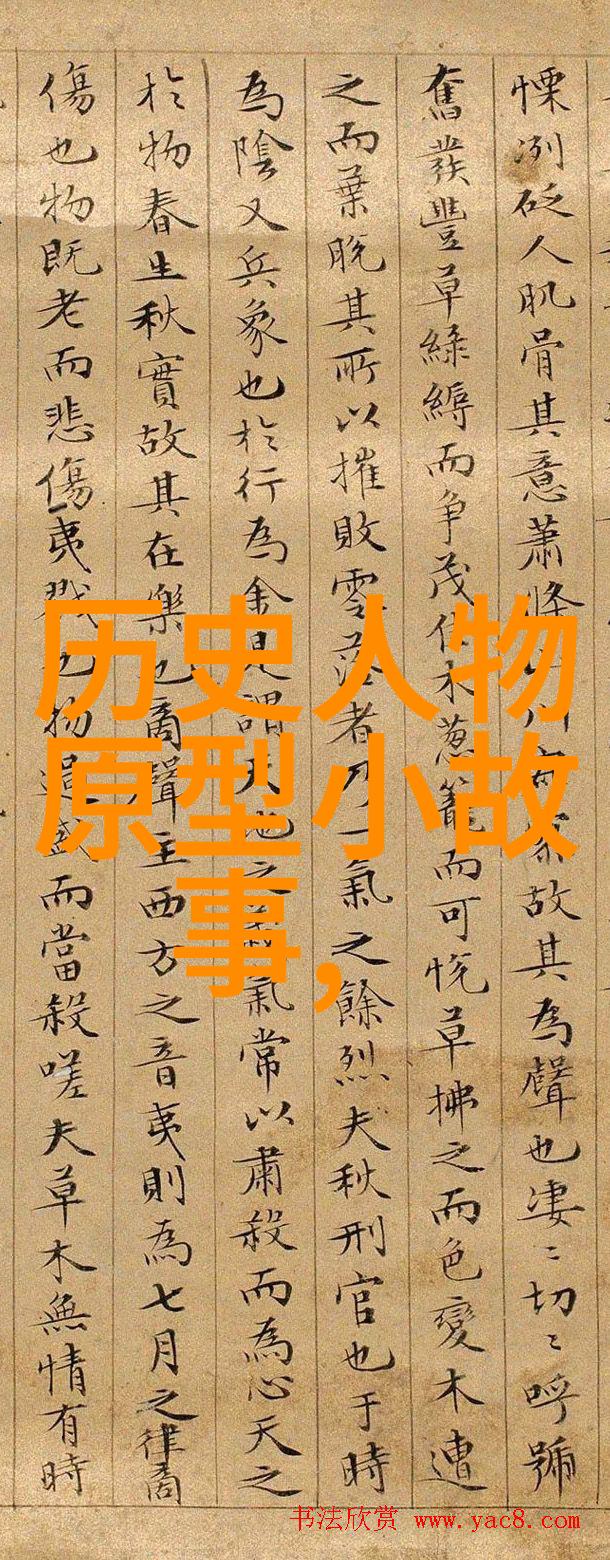 历史人物
原型小故
事,
慄冽砭人肌骨其意蕭條山川寂寥故其為聲也淒〻切〻呼號
奮發豐草綠縟而争茂佳木葱籠而可悦草拂之而色變木遭
之而葉脱其所以摧敗零落者乃一氣之餘烈夫秋刑官也于時
為陰又兵象也於行為金是謂天地之義氣常以肅殺而為心天之
於物春生秋實故其在樂也商聲主西方之音夷則為七月之律商
傷也物既老而悲傷夷戮也物過盛而當殺嗟夫草木無情有時
书法欣赏 www.yac8.com